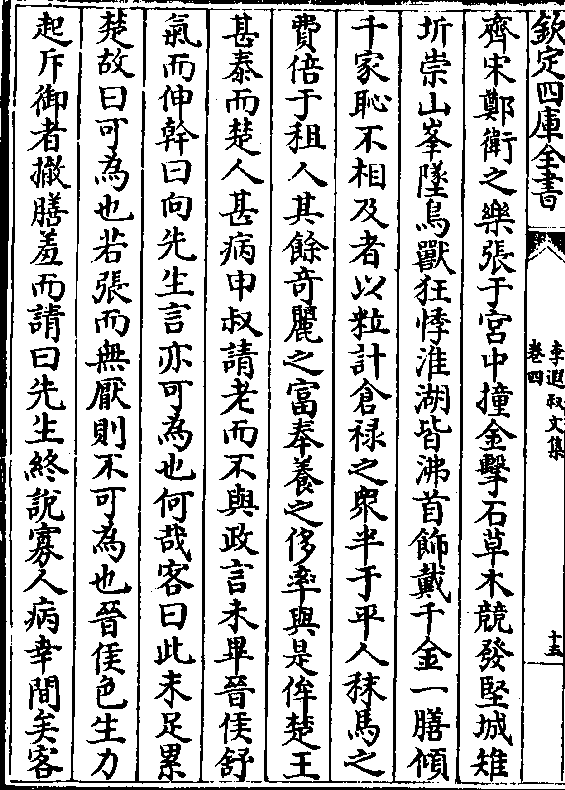 欽定四庫全書
李遐叔文集
卷四
十五
齊宋鄭衛之樂張于宮中撞金擊石草木競發堅城雉
圻崇山峯墜鳥獸狂悸淮湖皆沸首飾戴千金一膳傾
千家恥不相及者以粒計倉禄之衆半于平人秣馬之
費倍于租人其餘奇麗之富奉養之侈率與是侔楚王
甚泰而楚人甚病申叔請老而不與政言未畢晉侯舒
氣而伸幹曰向先生言亦可為也何哉客曰此未足累
楚故曰可為也若張而無厭則不可為也晉侯色生力
起斥御者撤膳羞而請曰先生終說寡人病幸間矣客